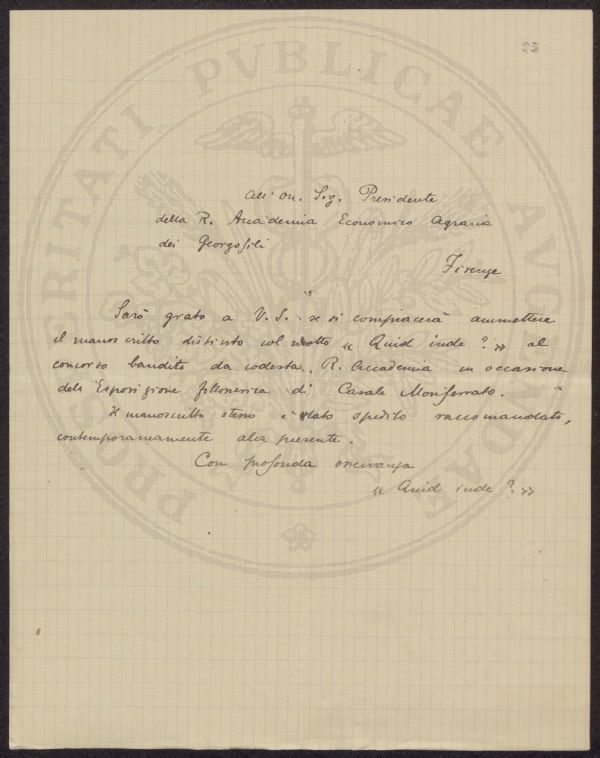 PROSPERITATI PVBLICAE AVGENDAE
22
All' On. Sig. Presidente
della R. Accademia Economico Agraria
dei Georgofili
Firenze
Sarò grato a V. S. se si compiacerà ammettere
il manoscritto distinto col motto « Quid inde? » al
concorso bandito da codesta R. Accademia in occasione
della Esposizione fillosserica di Casale Monferrato.
Il manoscritto stesso è stato spedito raccomandato,
contemporaneamente alla presente.
Con profonda osservanza
« Quid inde? »